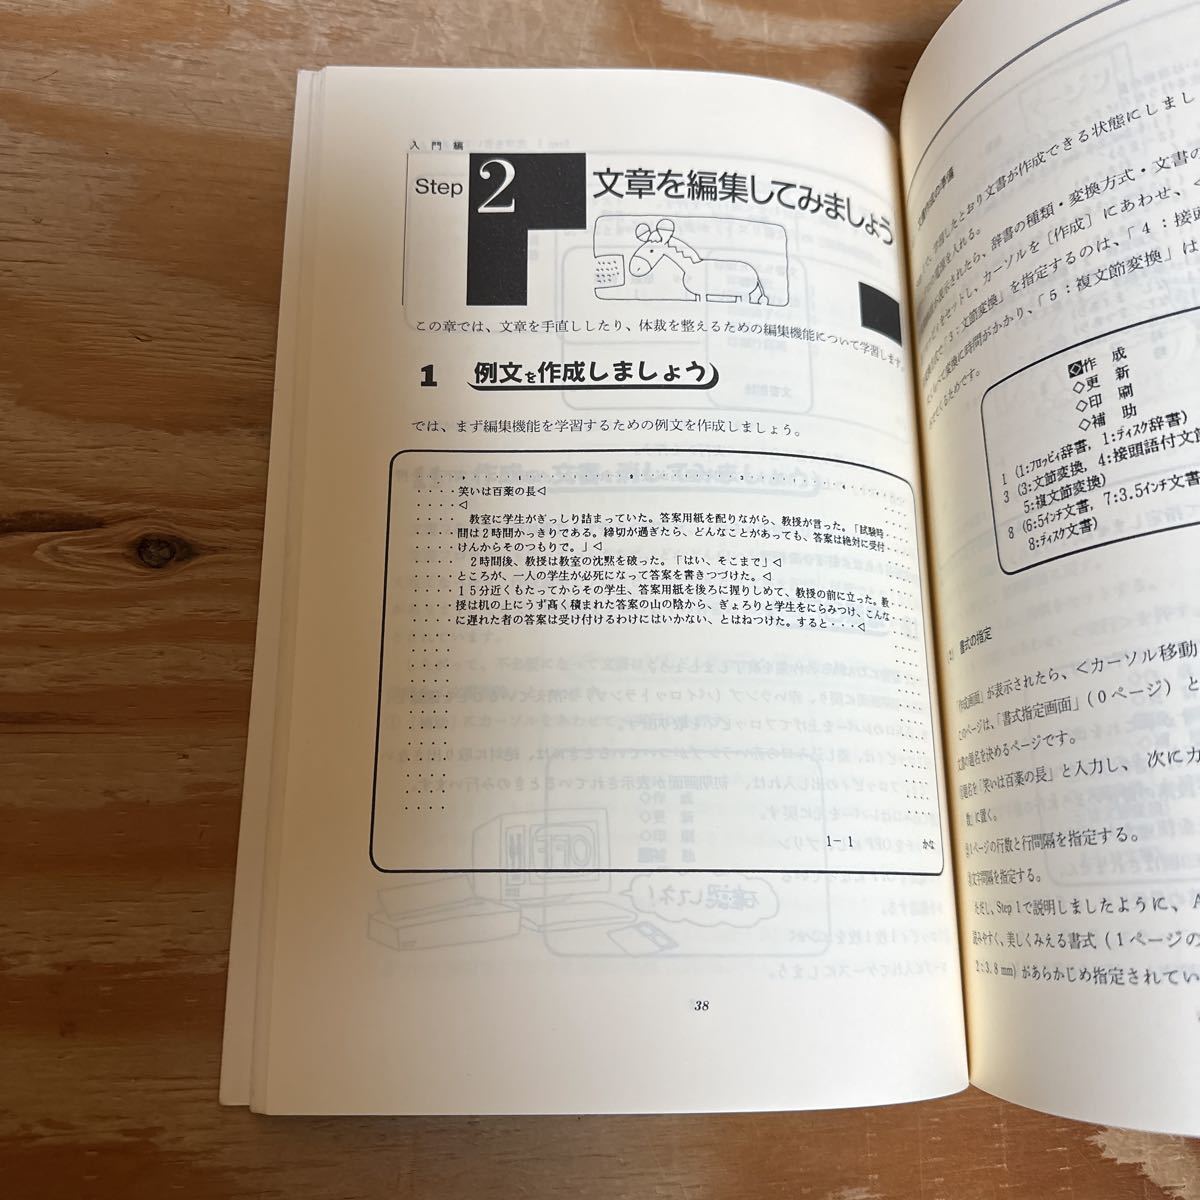 入門編
Step 2
文章を編集してみましょう
この章では、文章を手直ししたり、体裁を整えるための編集機能について学習します。
1 例文を作成しましょう
では、まず編集機能を学習するための例文を作成しましょう。
笑いは百薬の長◁
◁
教室に学生がぎっしり詰まっていた。答案用紙を配りながら、教授が言った。「試験時
間は2時間かっきりである。締切が過ぎたら、どんなことがあっても、答案は絶対に受付
けんからそのつもりで。」◁
2時間後、教授は教室の沈黙を破った。「はい、そこまで」◁
ところが、一人の学生が必死になって答案を書きつづけた。◁
15分近くもたってからその学生、答案用紙を後ろに握りしめて、教授の前に立った。教
授は机の上にうず高く積まれた答案の山の陰から、ぎょろりと学生をにらみつけ、こんな
に遅れた者の答案は受け付けるわけにはいかない、とはねつけた。すると・・・◁
1-1
かな
38
とおり文書が作成できる状態にしまし
を入れる。
表示されたら、辞書の種類・変換方式・文書の
をセットし、カーソルを〔作成〕にあわせ、<
「3:文節変換」を指定するのは、「4:接頭
変換に時間がかかり、「5:複文節変換」は
ためです。
◇作成
◇更新
◇印刷
◇補助
1 (1:フロッピィ辞書, 1:ディスク辞書)
3 (3:文節変換, 4:接頭語付文節
5:複文節変換)
8 (6:5インチ文書, 7:3.5インチ文書
8:ディスク文書)
書式の指定
「作成画面」が表示されたら、<カーソル移動
このページは、「書式指定画面」(0ページ) と
文書の題名を決めるページです。
題名を「笑いは百薬の長」と入力し、次にカ
数」に置く。
1ページの行数と行間隔を指定する。
文字間隔を指定する。
ただし、Step 1で説明しましたように、A
読みやすく、美しくみえる書式 (1ページの
2:3.8 mm) があらかじめ指定されてい